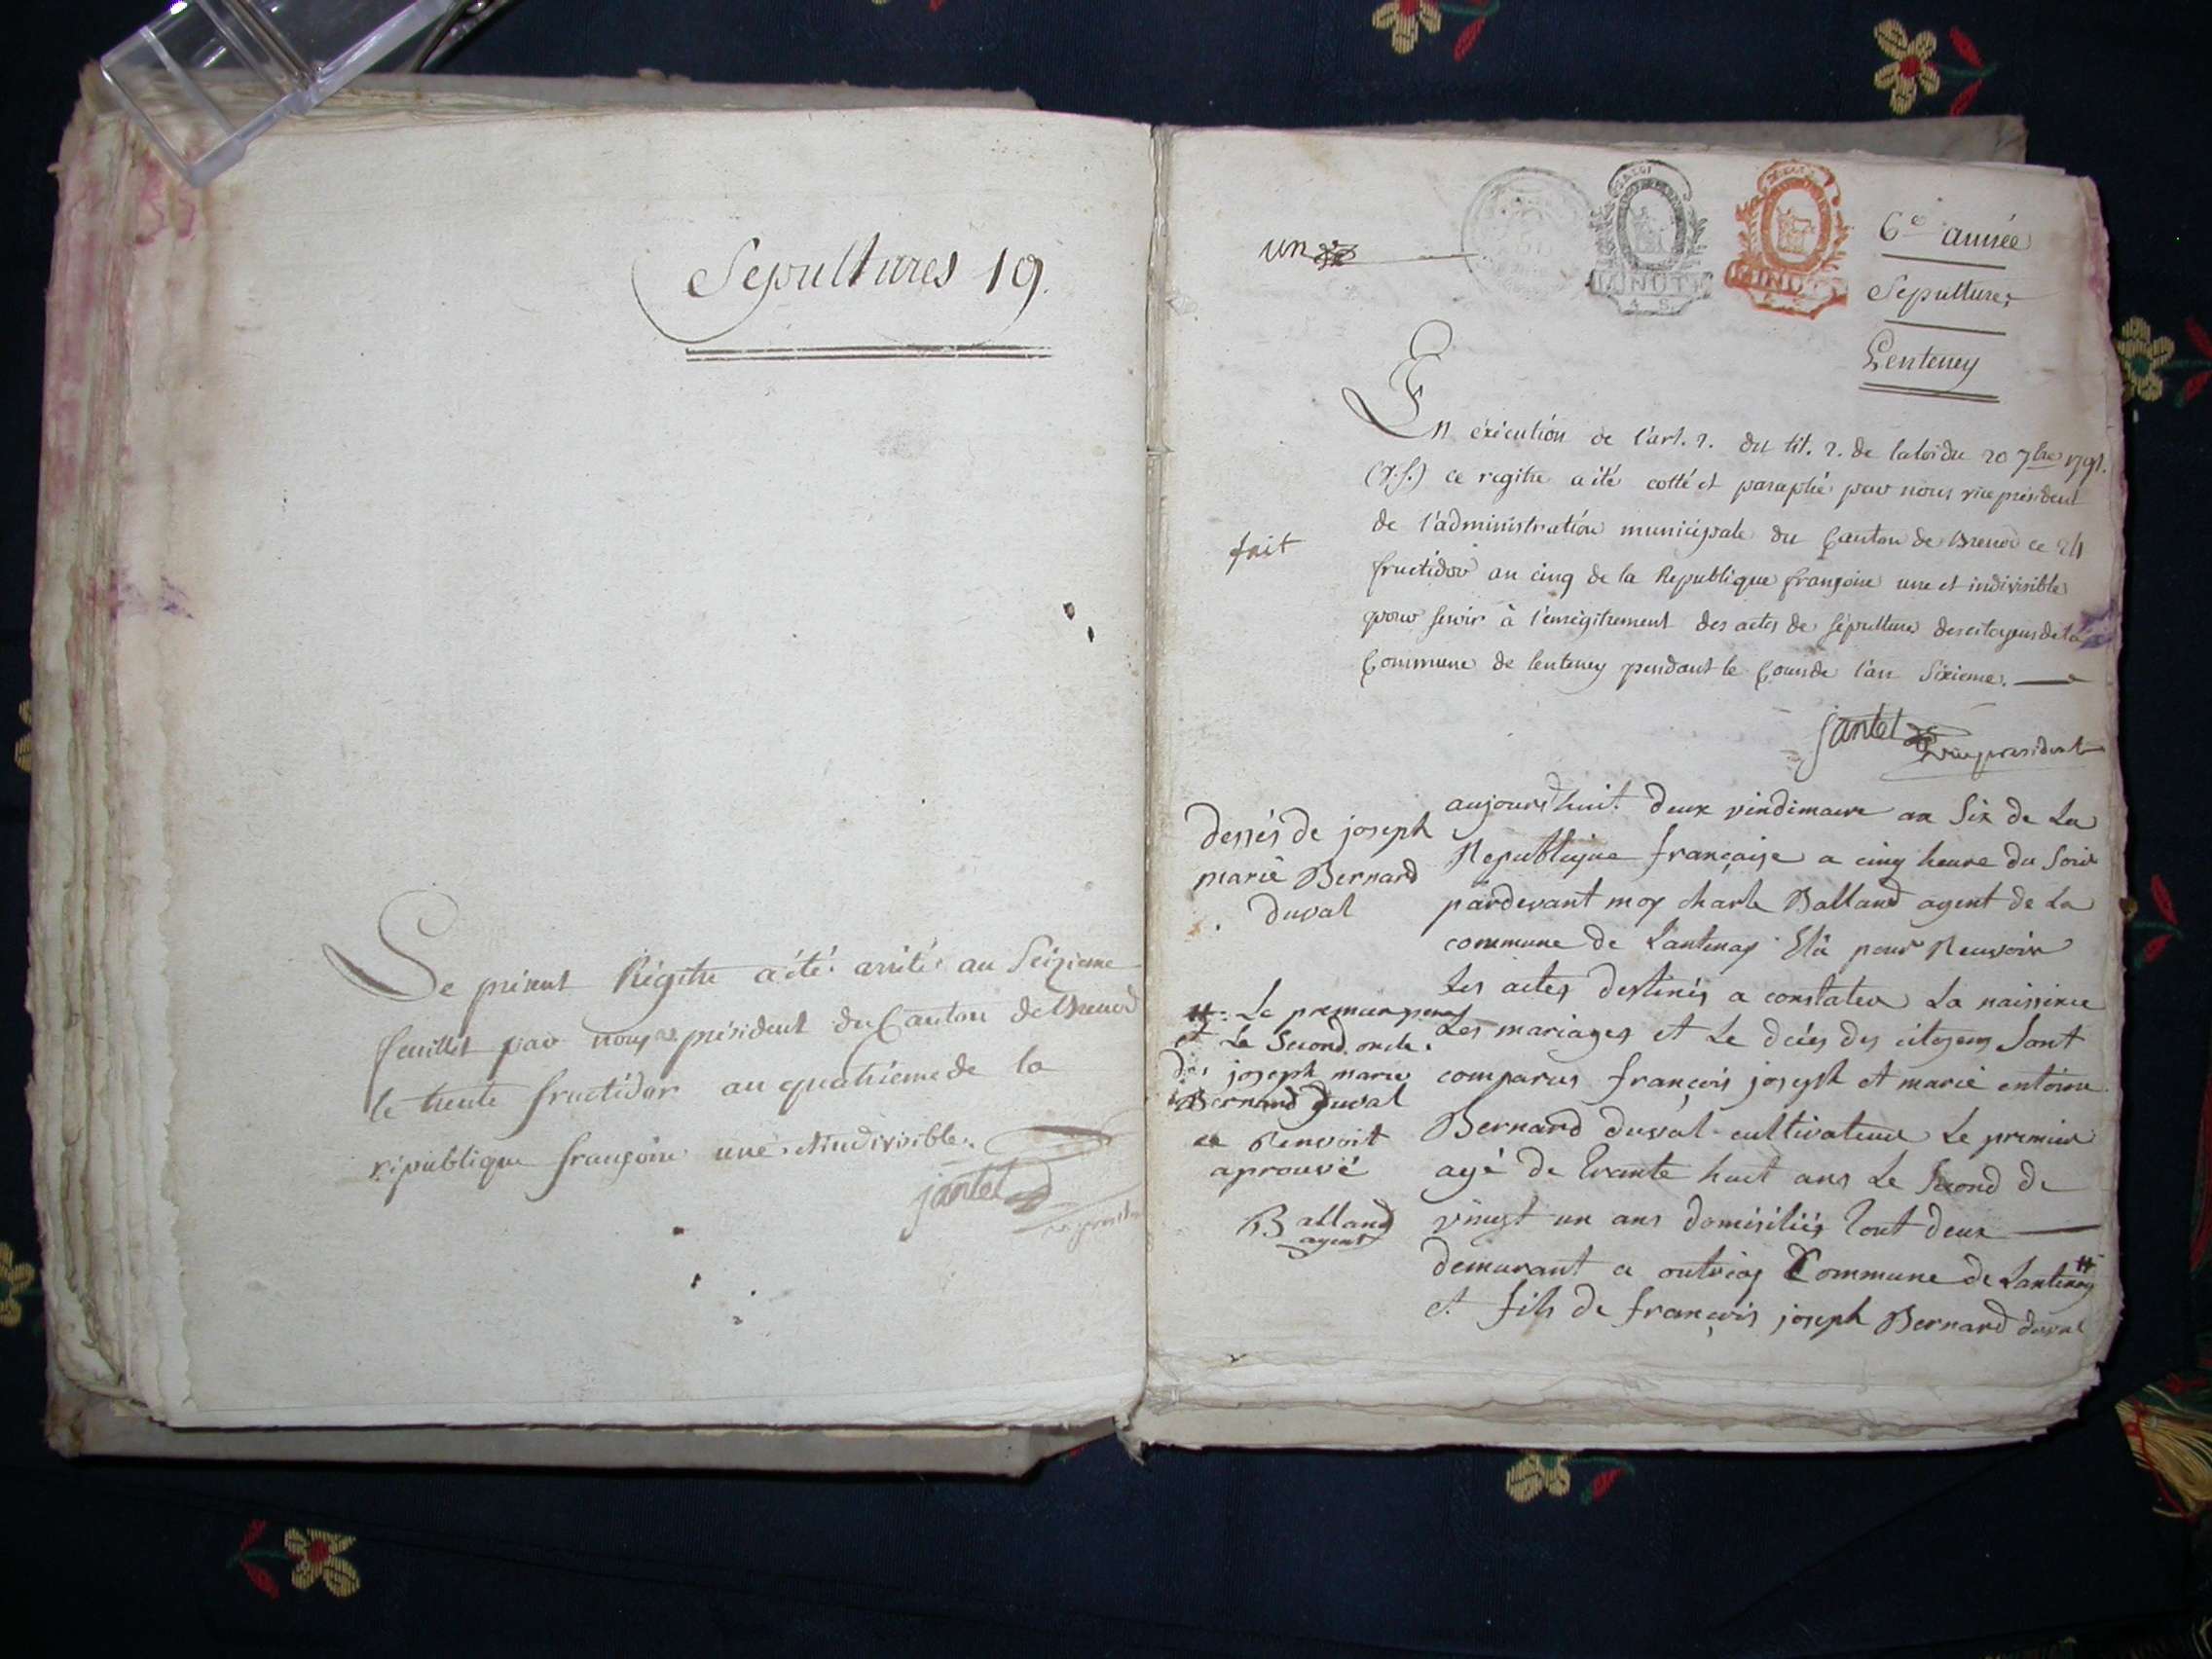 Sepultures 19.
Le présent Régitre a été arrêté au Seizieme
feuillet par nous président du Canton de Brenod
le trente fructidor an quatrième de la
république françoise une et indivisible.
jantet
un
MINUTE
MINUTE
6e année
Sepultures
Lenteney
En éxécution de l'art. 2. du tit. 2. de la loi du 20 7bre 1792.
(v.s.) ce regitre a été cotté et paraphé par nous vice président
de l'administration municipale du Canton de Brenod ce 24
fructidor an cinq de la Republique françoise une et indivisible
pour servir à l'enregitrement des actes de sépulture des citoyens de la
Commune de lenteney pendant le Cours de l'an Sixieme.
fait
jantet vice president
dessés de joseph
marie Bernard
duval
aujourdhuit deux vindimaire an Six de La
Republique française a cinq heure du Soir
pardevant moy charle Balland agent de La
commune de Lantenay Elû pour Reusvoir
les actes destinés a constater La naissince
Les mariages et Le décés des citoyens Sont
comparus françois joseph et marie entoine
Bernard duval cultivateur Le premier
agé de trante huit ans Le Second de
vingt un ans domisiliés tout deux
demurant a outriag Commune de Lantenay #
et fils de françois joseph Bernard duval
# Le premier pere
et Le Second oncle
dus joseph marie
Bernard Duval
ce Renvoit
aprouvé
Balland
agent